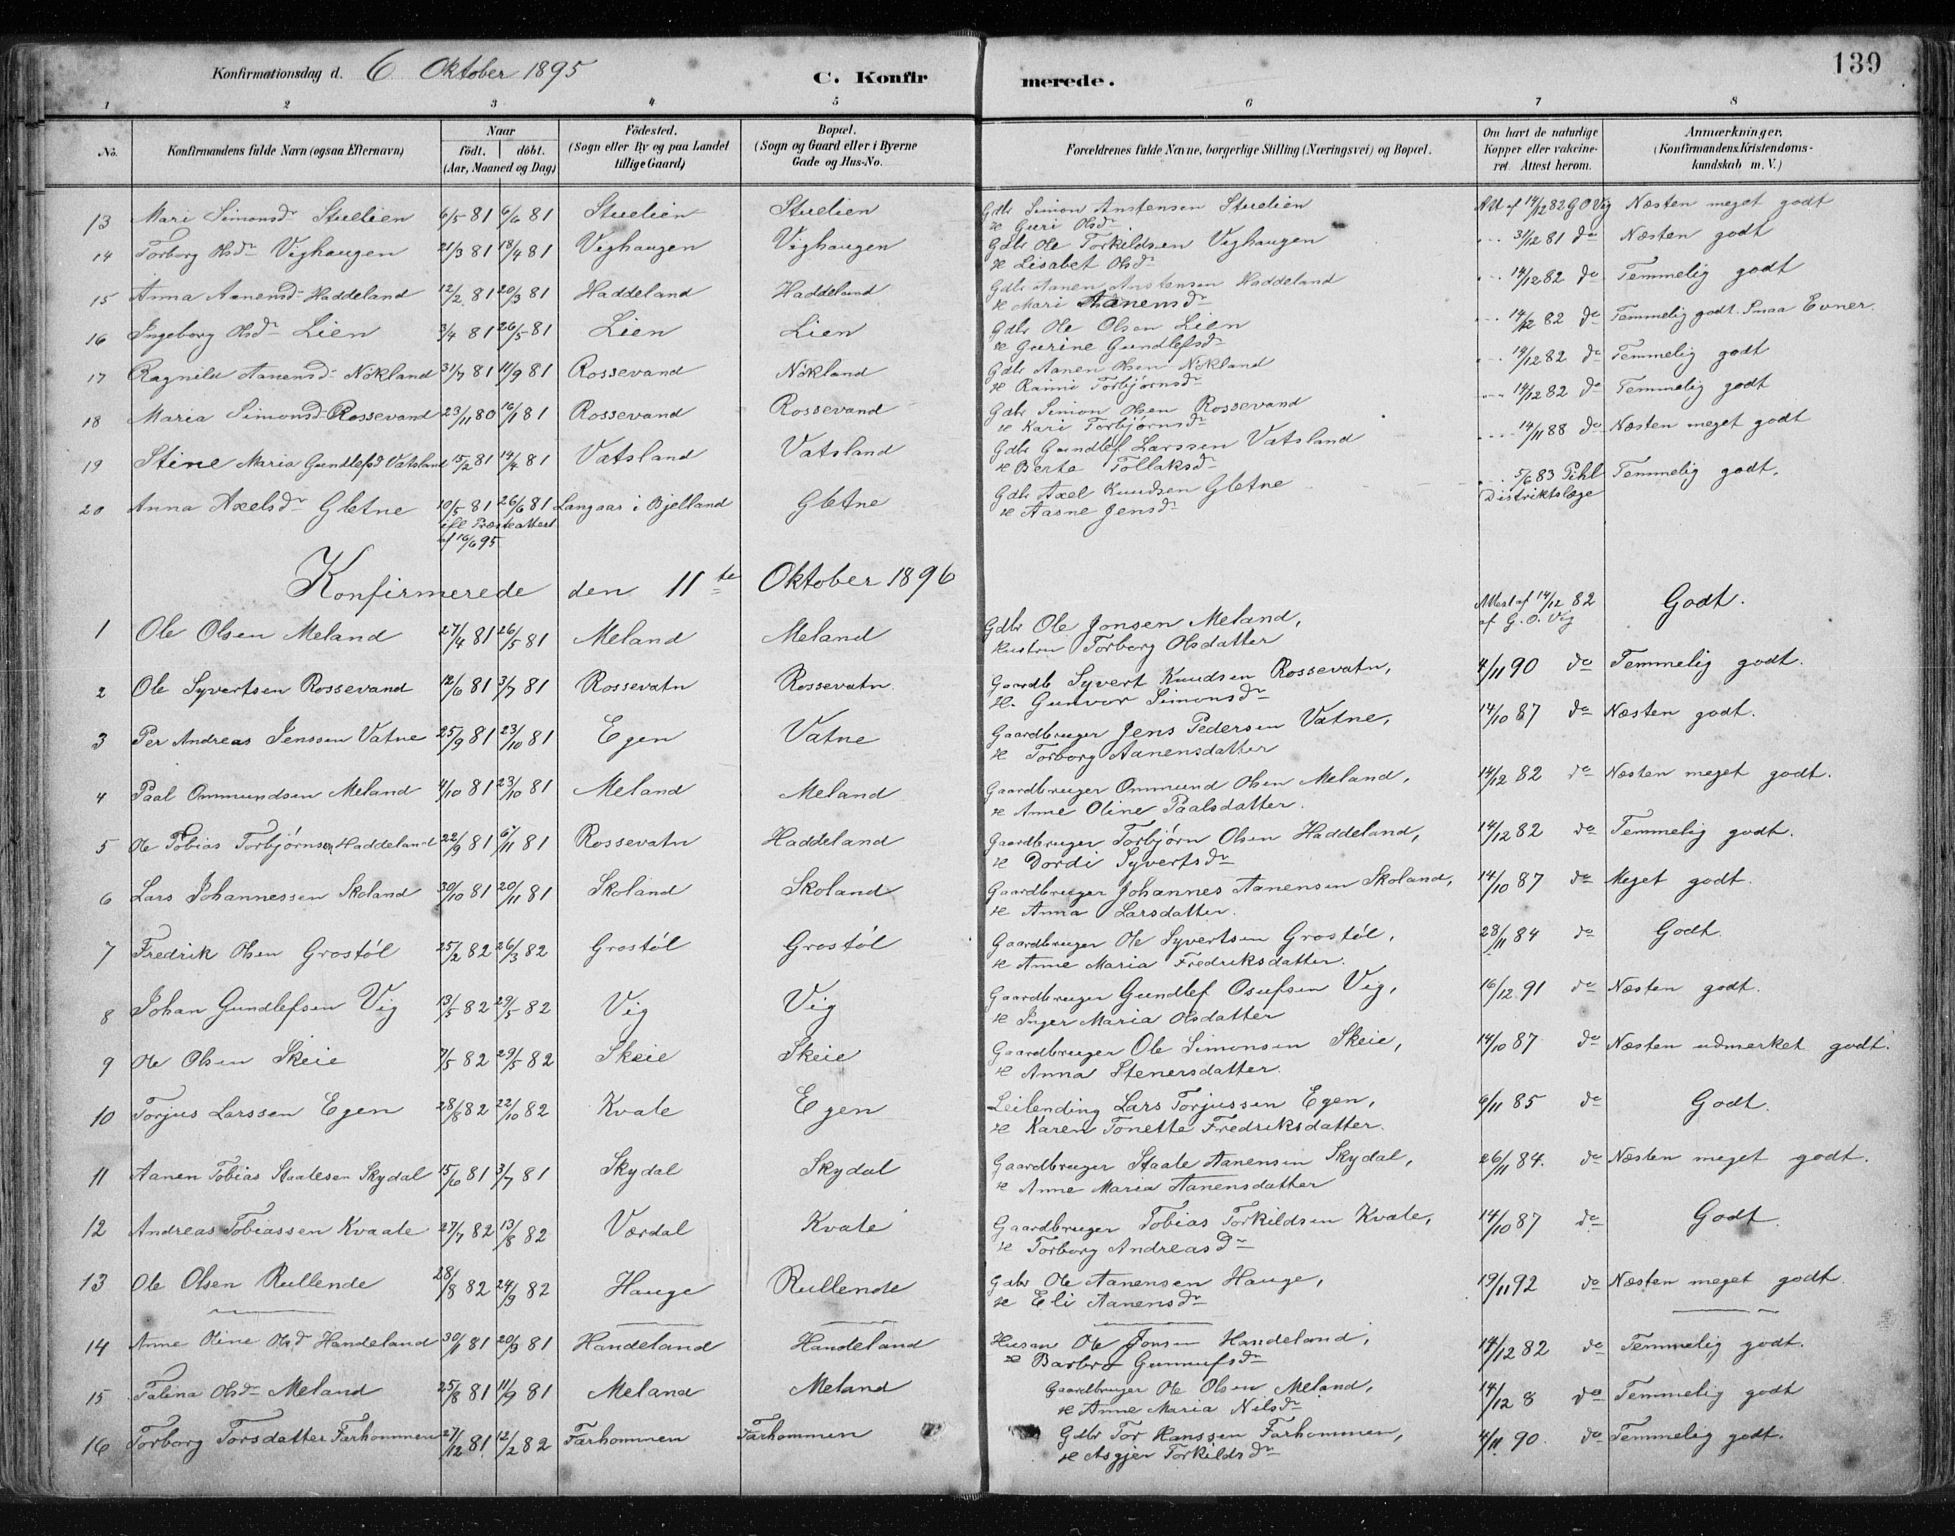 Konfirmationsdag d. 6 Oktober 1895 C. Konfirmerede. 139
1 2 3 4 5 6 7 8
No. Konfirmandens fulde Navn (ogsaa Efternavn) Naar födt. döbt. (Aar, Maaned og Dag) Födested. (Sogn eller By og paa Landet tillige Gaard) Bopæl. (Sogn og Gaard eller i Byerne Gade og Hus-No. Forældrenes fulde Navne, borgerlige Stilling (Næringsvei) og Bopæl. Om havt de naturlige Kopper eller vakcineret. Attest herom. Anmærkninger. (Konfirmandens Kristendomskundskab m. V.)
13 Mari Simonsdr Stuelien 6/5 81 6/6 81 Stuelien Stuelien Gdbr Simon Anstensen Stuelien Att af 14/12 82 G O Vig Næsten meget godt
H Guri Olsdr
14 Torborg Olsdr Vighaugen 21/3 81 18/4 81 Vighaugen Vighaugen Gdbr Ole Torkildsen Vighaugen 3/12 81 do Næsten godt
H Lisabet Olsdr
15 Anna Aanensdr Haddeland 12/2 81 20/3 81 Haddeland Haddeland Gdbr Aanen Anstensen Haddeland 14/12 82 do Temmelig godt
H Mari Aanensdr
16 Ingeborg Olsdr Lien 3/4 81 26/5 81 Lien Lien Gdbr Ole Olsen Lien 14/12 82 do Temmelig godt. Smaa Evner.
H Gurine Gundlefsdr
17 Ragnild Aanensdr Nökland 31/7 81 11/9 81 Rossevand Nökland Gdbr Aanen Olsen Nökland 14/12 82 do Temmelig godt
H Raini Torbjörnsdr
18 Maria Simonsdr Rossevand 23/11 80 16/1 81 Rossevand Rossevand Gdbr Simon Olsen Rossevand 14/12 82 do Temmelig godt
H Kari Torbjörnsdr
19 Stine Maria Gundlefsd Vatsland 15/2 81 14/4 81 Vatsland Vatsland Gdbr Gundlef Larssen Vatsland 14/11 88 do Næsten meget godt
H Berte Tollaksdr
20 Anna Axelsdr Gletne 10/5 81 26/6 81 Langaas i Bjelland Gletne Gdbr Axel Knudsen Gletne 5/6 83 Pihl Temmelig godt.
ifl Præsteattest H Aasne Jensdr Distriktslæge
af 16/6 95
Konfirmerede den 11te Oktober 1896
1 Ole Olsen Meland 27/4 81 26/5 81 Meland Meland Gdbr Ole Jonsen Meland, Attest af 14/12 82 Godt.
Hustru Torborg Olsdatter af G. O. Vig
2 Ole Syvertsen Rossevand 12/6 81 3/7 81 Rossevatn Rossevatn Gaardb Syvert Knudsen Rossevatn, 4/11 90 do Temmelig godt.
H. Gunvor Simonsdr
3 Per Andreas Jenssen Vatne 25/9 81 23/10 81 Egen Vatne Gaardbruger Jens Pedersen Vatne, 14/10 87 do Næsten godt.
H Torborg Aanensdatter
4 Paal Ommundsen Meland 4/10 81 23/10 81 Meland Meland Gaardbruger Ommund Olsen Meland, 14/12 82 do Næsten meget godt.
H Anne Oline Paalsdatter.
5 Ole Tobias Torbjörnsen Haddeland 22/9 81 6/11 81 Rossevatn Haddeland Gaardbruger Torbjörn Olsen Haddeland, 14/12 82 do Temmelig godt.
H Dordi Syvertsdr
6 Lars Johannessen Skoland 30/10 81 20/11 81 Skoland Skoland Gaardbruger Johannes Aanensen Skoland, 14/10 87 do Meget godt.
H Anna Larsdatter.
7 Fredrik Olsen Grostöl 25/2 82 26/3 82 Grostöl Grostöl Gaardbruger Ole Syvertsen Grostöl, 28/11 84 do Godt.
H Anne Maria Fredriksdatter.
8 Johan Gundlefsen Vig 13/5 82 29/5 82 Vig Vig Gaardbruger Gundlef Osufsen Vig, 16/12 91 do Næsten godt.
H Inger Maria Olsdatter
9 Ole Olsen Skeie 7/5 82 29/5 82 Skeie Skeie Gaardbruger Ole Simonsen Skeie, 14/10 87 do Næsten udmerket godt.
H Anna Stenersdatter.
10 Torjus Larssen Egen 28/8 82 22/10 82 Kvale Egen Leilending Lars Torjussen Egen, 6/11 85 do Godt.
H Karen Tonette Fredriksdatter.
11 Aanen Tobias Staalesen Skydal 15/6 81 3/7 81 Skydal Skydal Gaardbruger Staale Aanensen Skydal, 26/11 84. do Næsten meget godt.
H Anne Maria Aanensdatter
12 Andreas Tobiassen Kvaale 27/7 82 13/8 82 Værdal Kvale Gaardbruger Tobias Torkildsen Kvale, 14/10 87 do Godt
H Torborg Andreasdr
13 Ole Olsen Rullende 28/8 82 24/9 82 Hauge Rullende Gdbr Ole Aanensen Hauge, 19/11 92 do Næsten meget godt.
H Eli Aanensdr
14 Anne Oline Olsd Handeland 30/1 81 20/3 81 Handeland Handeland Husm Ole Jonsen Handeland, 14/12 82 do Temmelig godt.
H Barbro Gunnufsdr
15 Talina Olsdr Meland 25/8 81 11/9 81 Meland Meland Gaardbruger Ole Olsen Meland, 14/12 8 do Temmelig godt
H Anne Maria Nilsdr
16 Torborg Torsdatter Farhommen 27/12 81 12/2 82 Farhommen Farhommen Gdbr Tor Hanssen Farhommen, 4/11 90. do Temmelig godt.
H Asgjer Torkildsdr